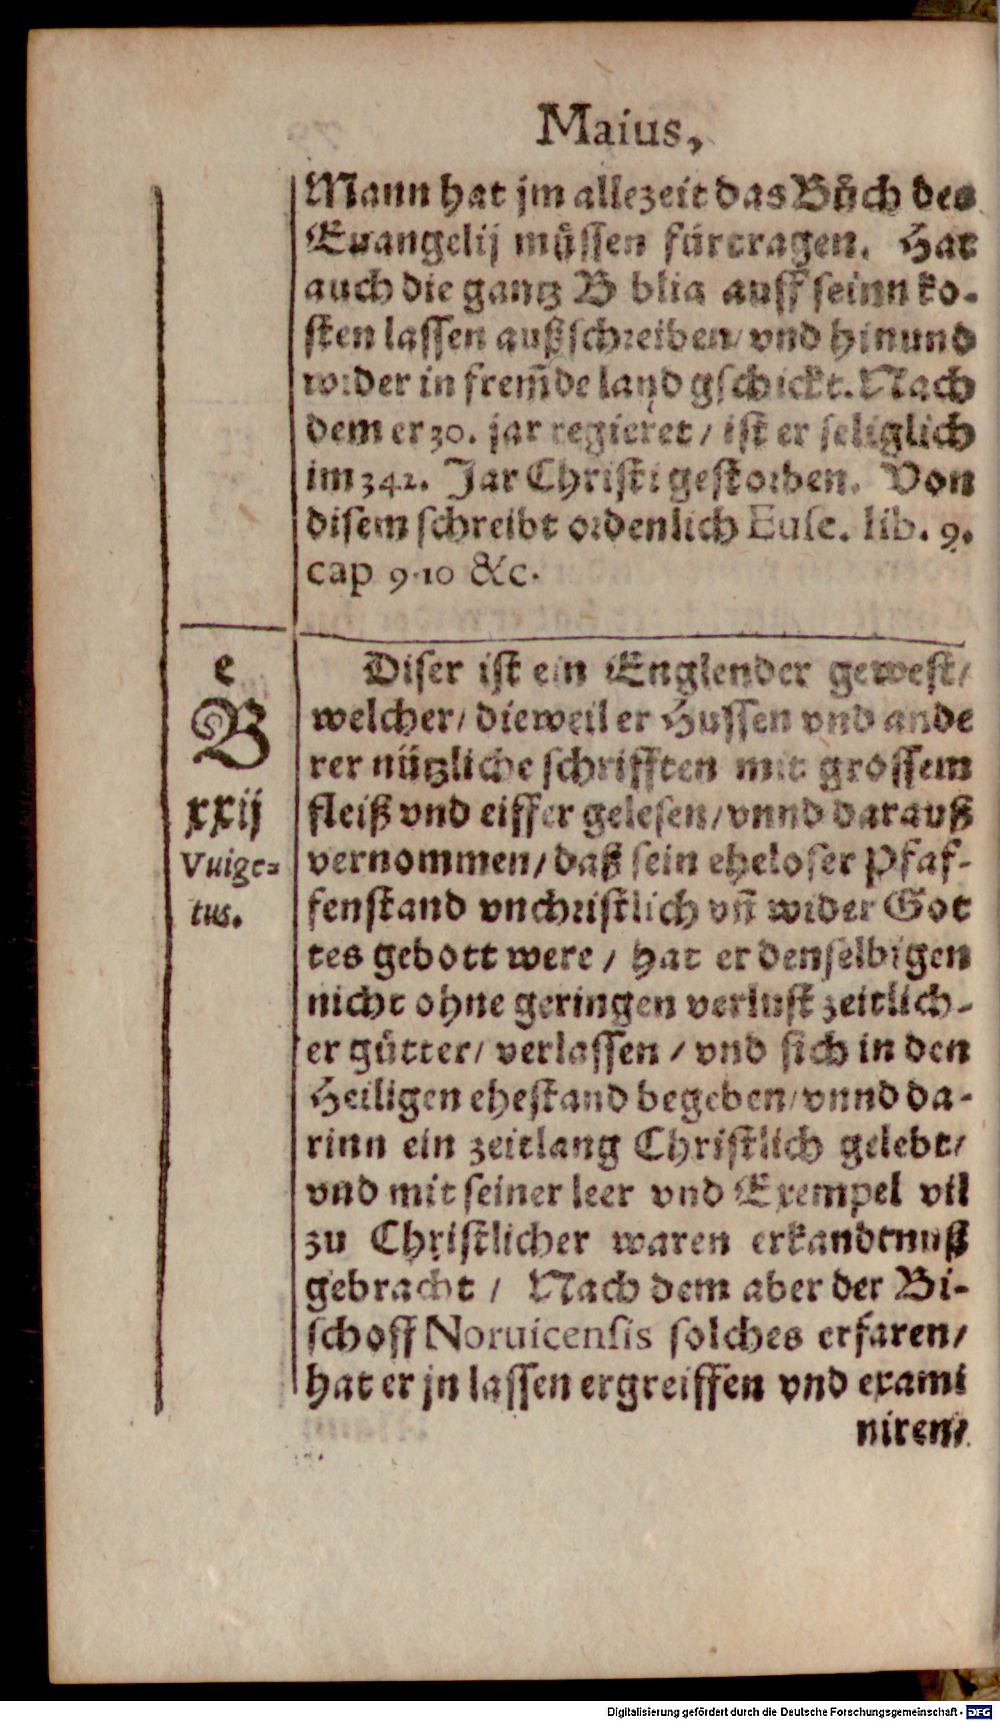 Maius,
Mann hat jm allezeit das Bůch des
Euangelij můssen fürtragen. Hat
auch die gantz B blia auff seinn ko-
sten lassen außschreiben/ vnd hinund
wider in frem̃de land gschickt. Nach
dem er 30. jar regieret / ist er seliglich
im 342. Jar Christi gestorben. Von
disem schreibt ordenlich Euse. lib. 9.
cap 9.10 &c.
e
B
xxij
Vuige-
tus.
Diser ist ein Englender gewest/
welcher/ dieweil er Hussen vnd ande
rer nützliche schrifften mit grossem
fleiß vnd eiffer gelesen/ vnnd darauß
vernommen/ daß sein eheloser Pfaf-
fenstand vnchristlich vñ wider Got
tes gebott were / hat er denselbigen
nicht ohne geringen verlust zeitlich-
er gütter/ verlassen / vnd sich in den
Heiligen ehestand begeben/ vnnd da-
rinn ein zeitlang Christlich gelebt/
vnd mit seiner leer vnd Exempel vil
zu Christlicher waren erkandtnuß
gebracht / Nach dem aber der Bi-
schoff Noruicensis solches erfaren/
hat er jn lassen ergreiffen vnd exami
niren/
Digitalisierung gefördert durch die Deutsche Forschungsgemeinschaft - DFG